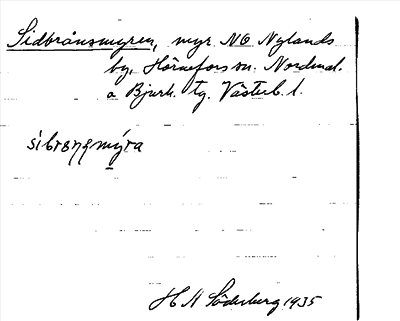 Sidbrånsmyren, myr NO Nylands
by, Hörnefors sn. Nordmal.
a Bjurh. tg. Västerb. l.
sìbrɑŋsmýra
H N Söderberg 1935